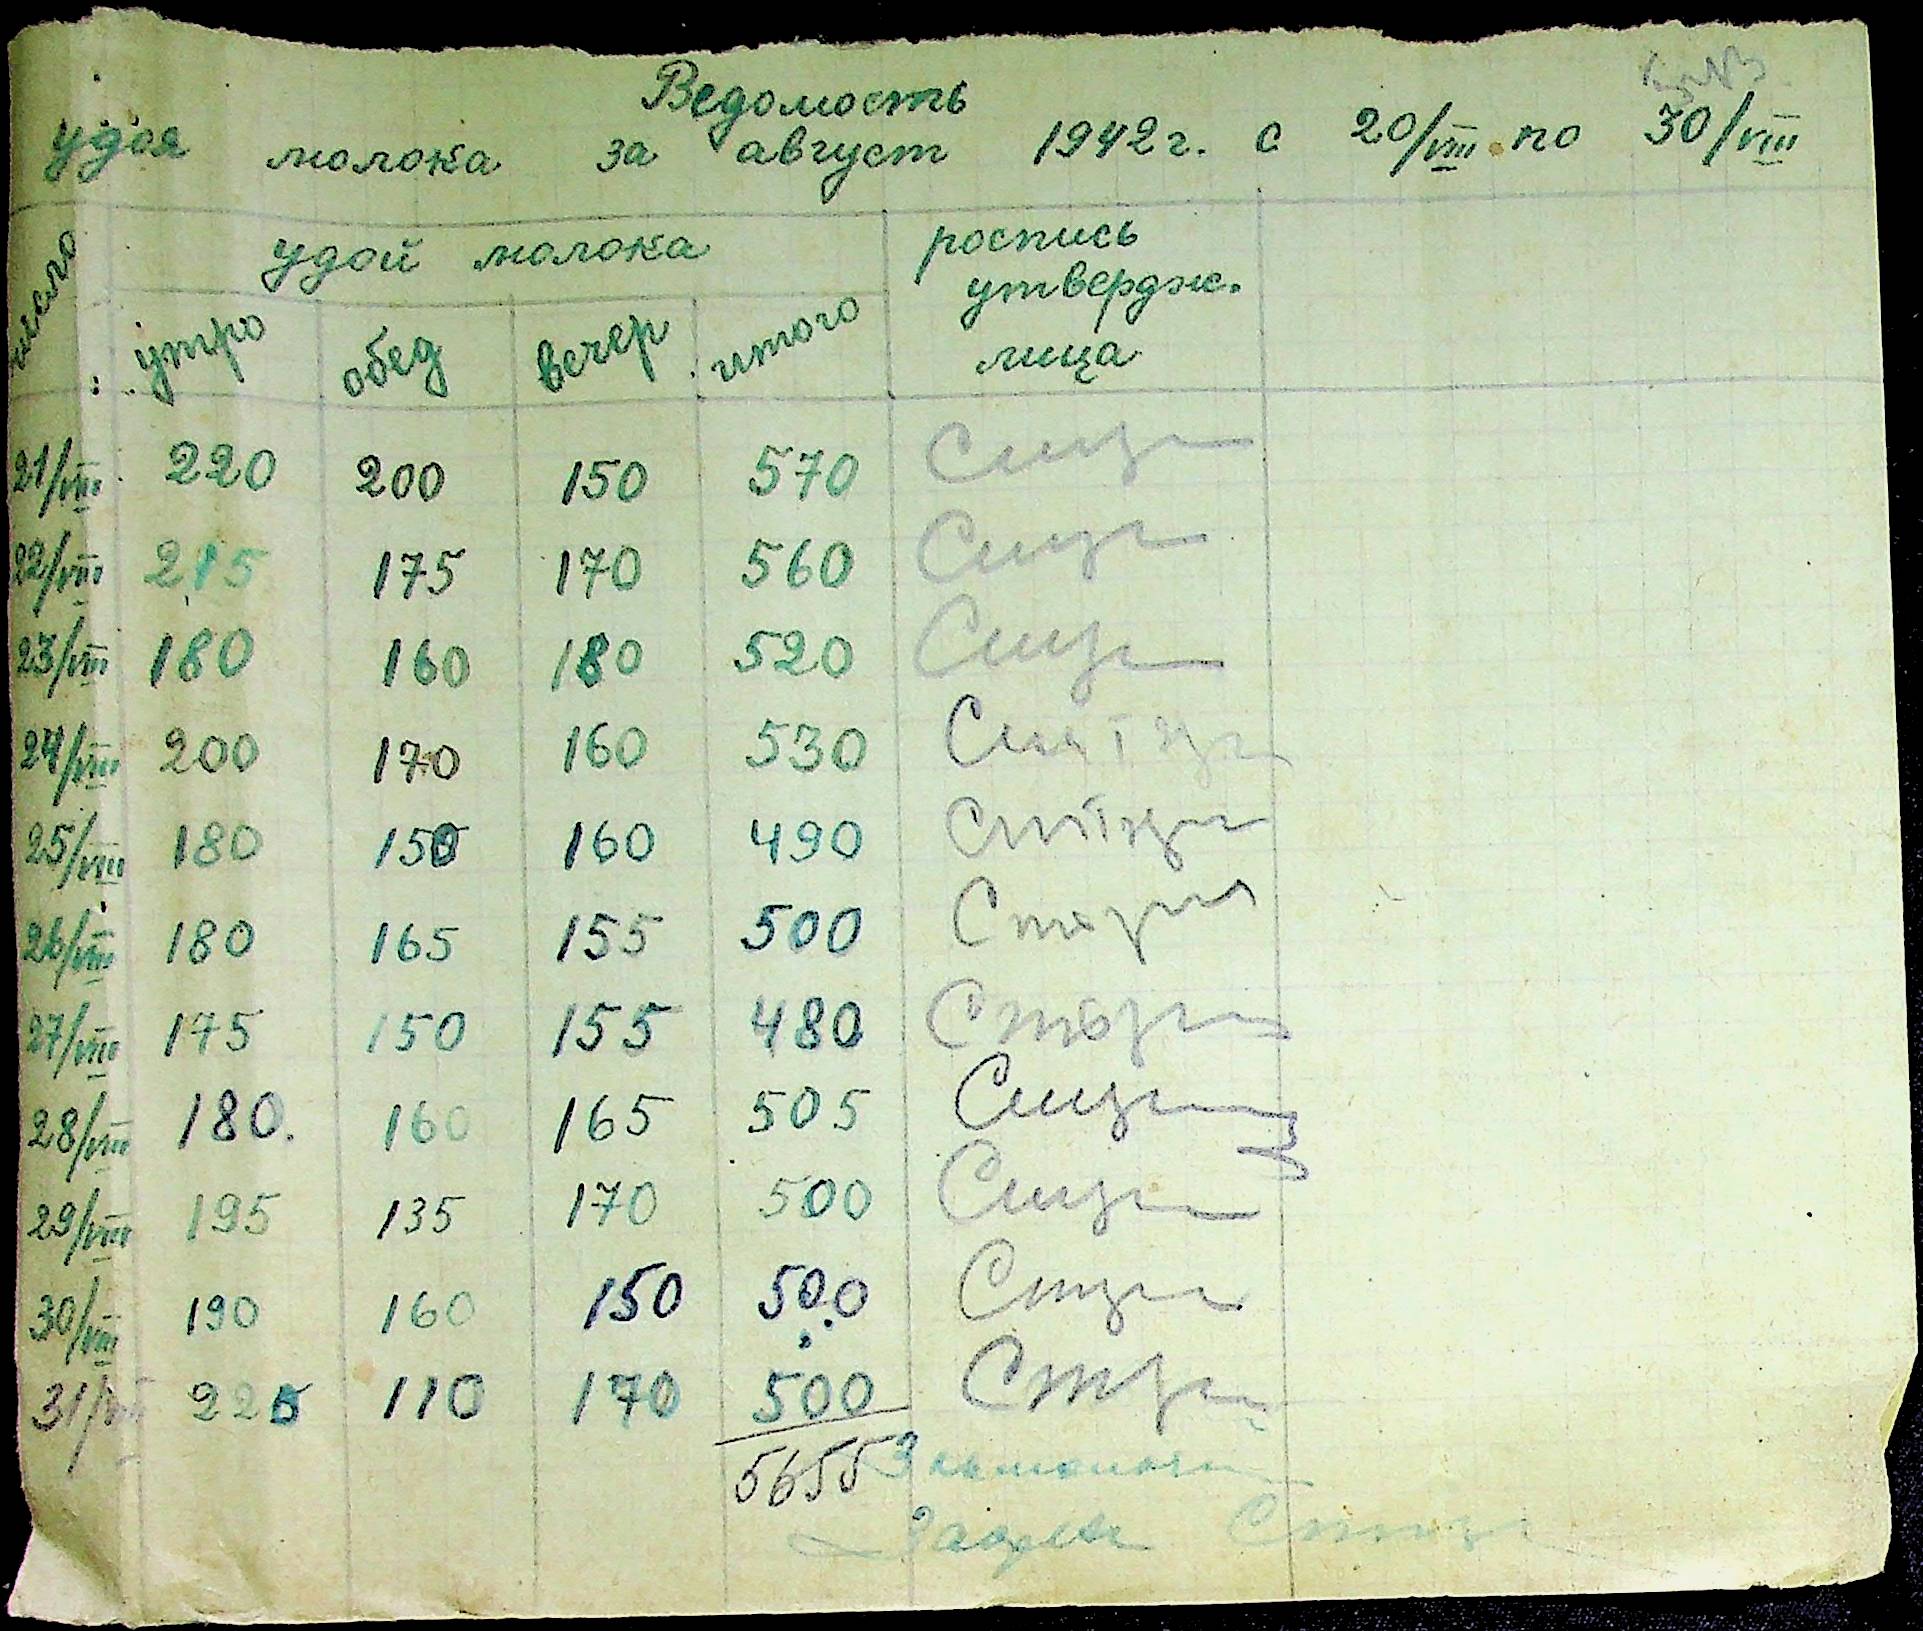 Ведомость
удоя молока за август 1942 г. с 20/VIII по 30/VIII
число удой молока роспись
утвердж.
лица
утро обед вечер итого
21/VIII 220 200 150 570
22/VIII 215 175 170 560
23/VIII 180 160 180 520
24/VIII 200 170 160 530
25/VIII 180 150 160 490
26/VIII 180 165 155 500
27/VIII 175 150 155 480
28/VIII 180. 160 165 505
29/VIII 195 135 170 500
30/VIII 190 160 150 500
31/VIII 225 110 170 500
5655